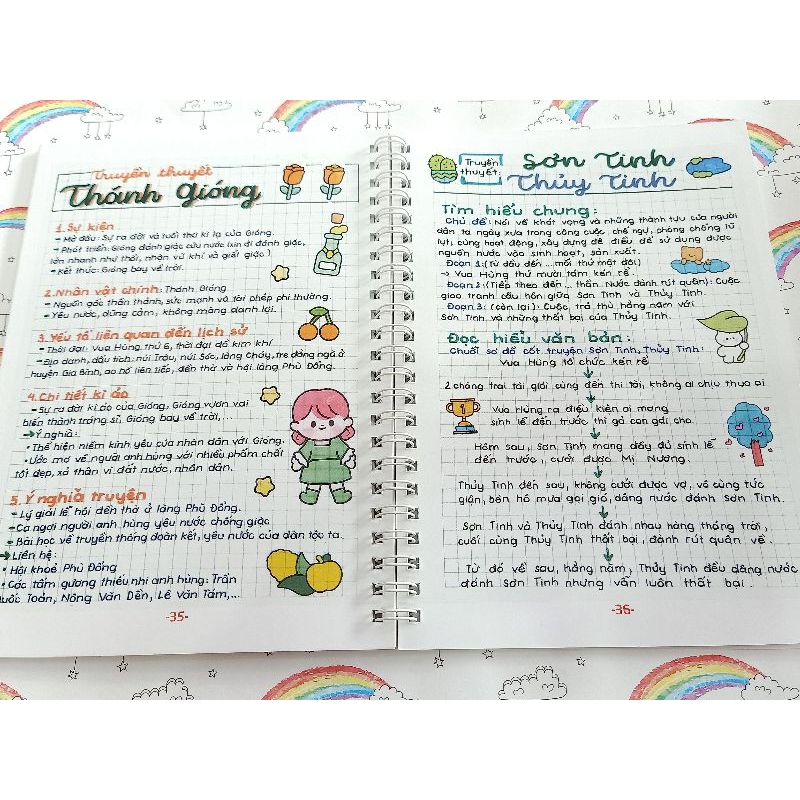 Truyền thuyết
Thánh Gióng
1. Sự kiện
- Mở đầu: Sự ra đời và tuổi thơ kì lạ của Gióng.
- Phát triển: Gióng đánh giặc cứu nước (xin đi đánh giặc,
lớn nhanh như thổi, nhận vũ khí và giết giặc)
- Kết thúc: Gióng bay về trời.
2. Nhân vật chính: Thánh Gióng
- Nguồn gốc thần thánh, sức mạnh và tài phép phi thường.
- Yêu nước, dũng cảm, không màng danh lợi.
3. Yếu tố liên quan đến lịch sử
- Thời đại: Vua Hùng thứ 6, thời đại đồ kim khí
- Địa danh, dấu tích: núi Trâu, núi Sóc, làng Cháy, tre đằng ngà ở
huyện Gia Bình, ao hồ liên tiếp, đền thờ và hội làng Phù Đổng.
4. Chi tiết kì ảo
- Sự ra đời kì ảo của Gióng, Gióng vươn vai
biến thành tráng sĩ, Gióng bay về trời,...
→ Ý nghĩa:
• Thể hiện niềm kính yêu của nhân dân với Gióng.
• Ước mơ về người anh hùng với nhiều phẩm chất
tốt đẹp, xả thân vì đất nước, nhân dân.
5. Ý nghĩa truyện
- Lý giải lễ hội đền thờ ở làng Phù Đổng.
- Ca ngợi người anh hùng yêu nước chống giặc
- Bài học về truyền thống đoàn kết, yêu nước của dân tộc ta.
→ Liên hệ:
• Hội khoẻ Phù Đổng
• Các tấm gương thiếu nhi anh hùng: Trần
Quốc Toản, Nông Văn Dền, Lê Văn Tám,...
-35-
Truyền thuyết:
Sơn Tinh
Thủy Tinh
Tìm hiểu chung:
Chủ đề: Nói về khát vọng và những thành tựu của người
dân ta ngày xưa trong công cuộc chế ngự, phòng chống lũ
lụt, cùng hoạt động, xây dựng đê điều để sử dụng được
nguồn nước vào sinh hoạt, sản xuất.
Đoạn 1: (Từ đầu đến ... mỗi thứ một đôi)
→ Vua Hùng thứ mười tám kén rể.
Đoạn 2: (Tiếp theo đến ... thần Nước đành rút quân): Cuộc
giao tranh cầu hôn giữa Sơn Tinh và Thủy Tinh.
Đoạn 3: (còn lại): Cuộc trả thù hằng năm với
Sơn Tinh và những thất bại của Thủy Tinh.
Đọc hiểu văn bản:
Chuỗi sơ đồ cốt truyện Sơn Tinh, Thủy Tinh:
Vua Hùng tổ chức kén rể
2 chàng trai tài giỏi cùng đến thi tài, không ai chịu thua ai
Vua Hùng ra điều kiện ai mang
sính lễ đến trước thì gả con gái cho.
Hôm sau, Sơn Tinh mang đầy đủ sính lễ
đến trước, cưới được Mị Nương.
Thủy Tinh đến sau, không cưới được vợ, vô cùng tức
giận, bèn hô mưa gọi gió, dâng nước đánh Sơn Tinh.
Sơn Tinh và Thủy Tinh đánh nhau hàng tháng trời,
cuối cùng Thủy Tinh thất bại, đành rút quân về.
Từ đó về sau, hằng năm, Thủy Tinh đều dâng nước
đánh Sơn Tinh nhưng vẫn luôn thất bại.
-36-